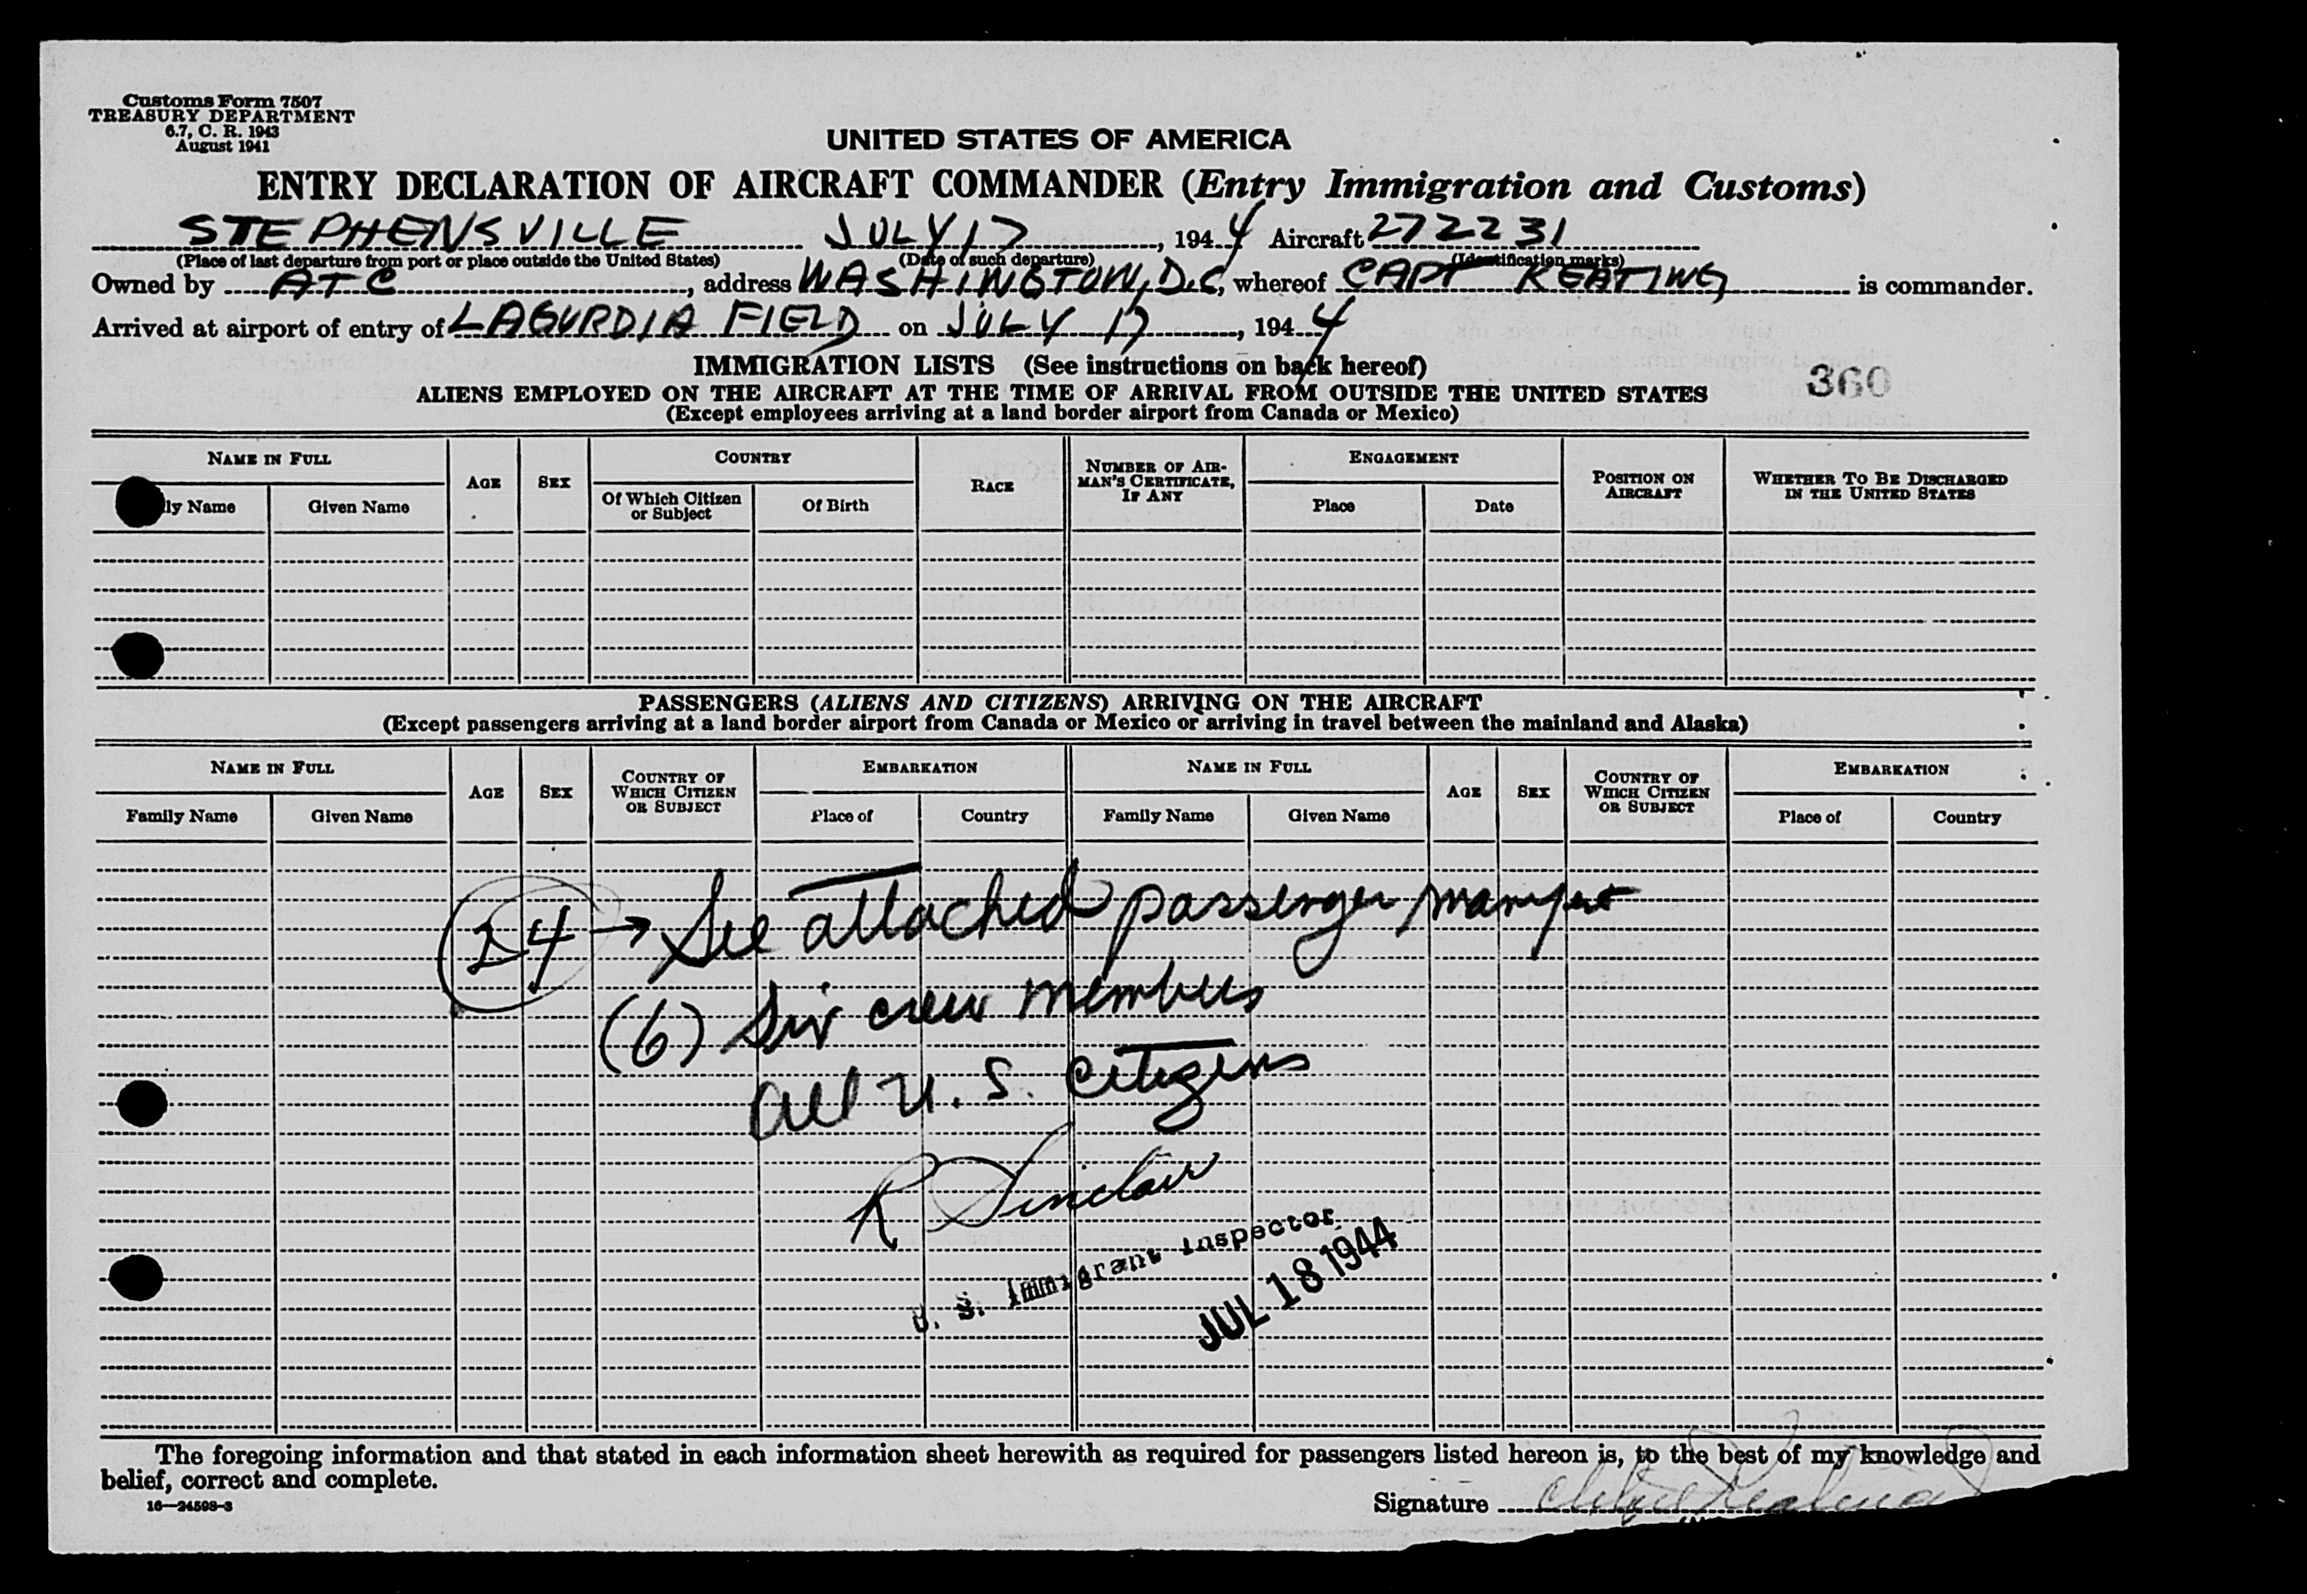 Customs Form 7507
TREASURY DEPARTMENT
6.7, C. R. 1943
August 1941
UNITED STATES OF AMERICA
ENTRY DECLARATION OF AIRCRAFT COMMANDER (Entry Immigration and Customs)
STEPHENSVILLE JULY 17, 1944 Aircraft 272231
(Place of last departure from port or place outside the United States) (Date of such departure) (Identification marks)
Owned by ATC, address WASHINGTON, D.C, whereof CAPT KEATING is commander.
Arrived at airport of entry of LAGURDIA FIELD on JULY 17, 1944
IMMIGRATION LISTS (See instructions on back hereof)
ALIENS EMPLOYED ON THE AIRCRAFT AT THE TIME OF ARRIVAL FROM OUTSIDE THE UNITED STATES
360
(Except employees arriving at a land border airport from Canada or Mexico)
NAME IN FULL AGE SEX COUNTRY RACE NUMBER OF AIR-MAN'S CERTIFICATE, IF ANY ENGAGEMENT POSITION ON AIRCRAFT WHETHER TO BE DISCHARGED IN THE UNITED STATES
ly Name Given Name Of Which Citizen or Subject Of Birth Place Date
PASSENGERS (ALIENS AND CITIZENS) ARRIVING ON THE AIRCRAFT
(Except passengers arriving at a land border airport from Canada or Mexico or arriving in travel between the mainland and Alaska)
NAME IN FULL AGE SEX COUNTRY OF WHICH CITIZEN OR SUBJECT EMBARKATION NAME IN FULL AGE SEX COUNTRY OF WHICH CITIZEN OR SUBJECT EMBARKATION
Family Name Given Name Place of Country Family Name Given Name Place of Country
24 → See attached passenger manifest
(6) Six crew members
all U. S. Citizens
R Sinclair
U. S. Immigrant Inspector
JUL 18 1944
The foregoing information and that stated in each information sheet herewith as required for passengers listed hereon is, to the best of my knowledge and
belief, correct and complete.
16—24598-3
Signature Keating